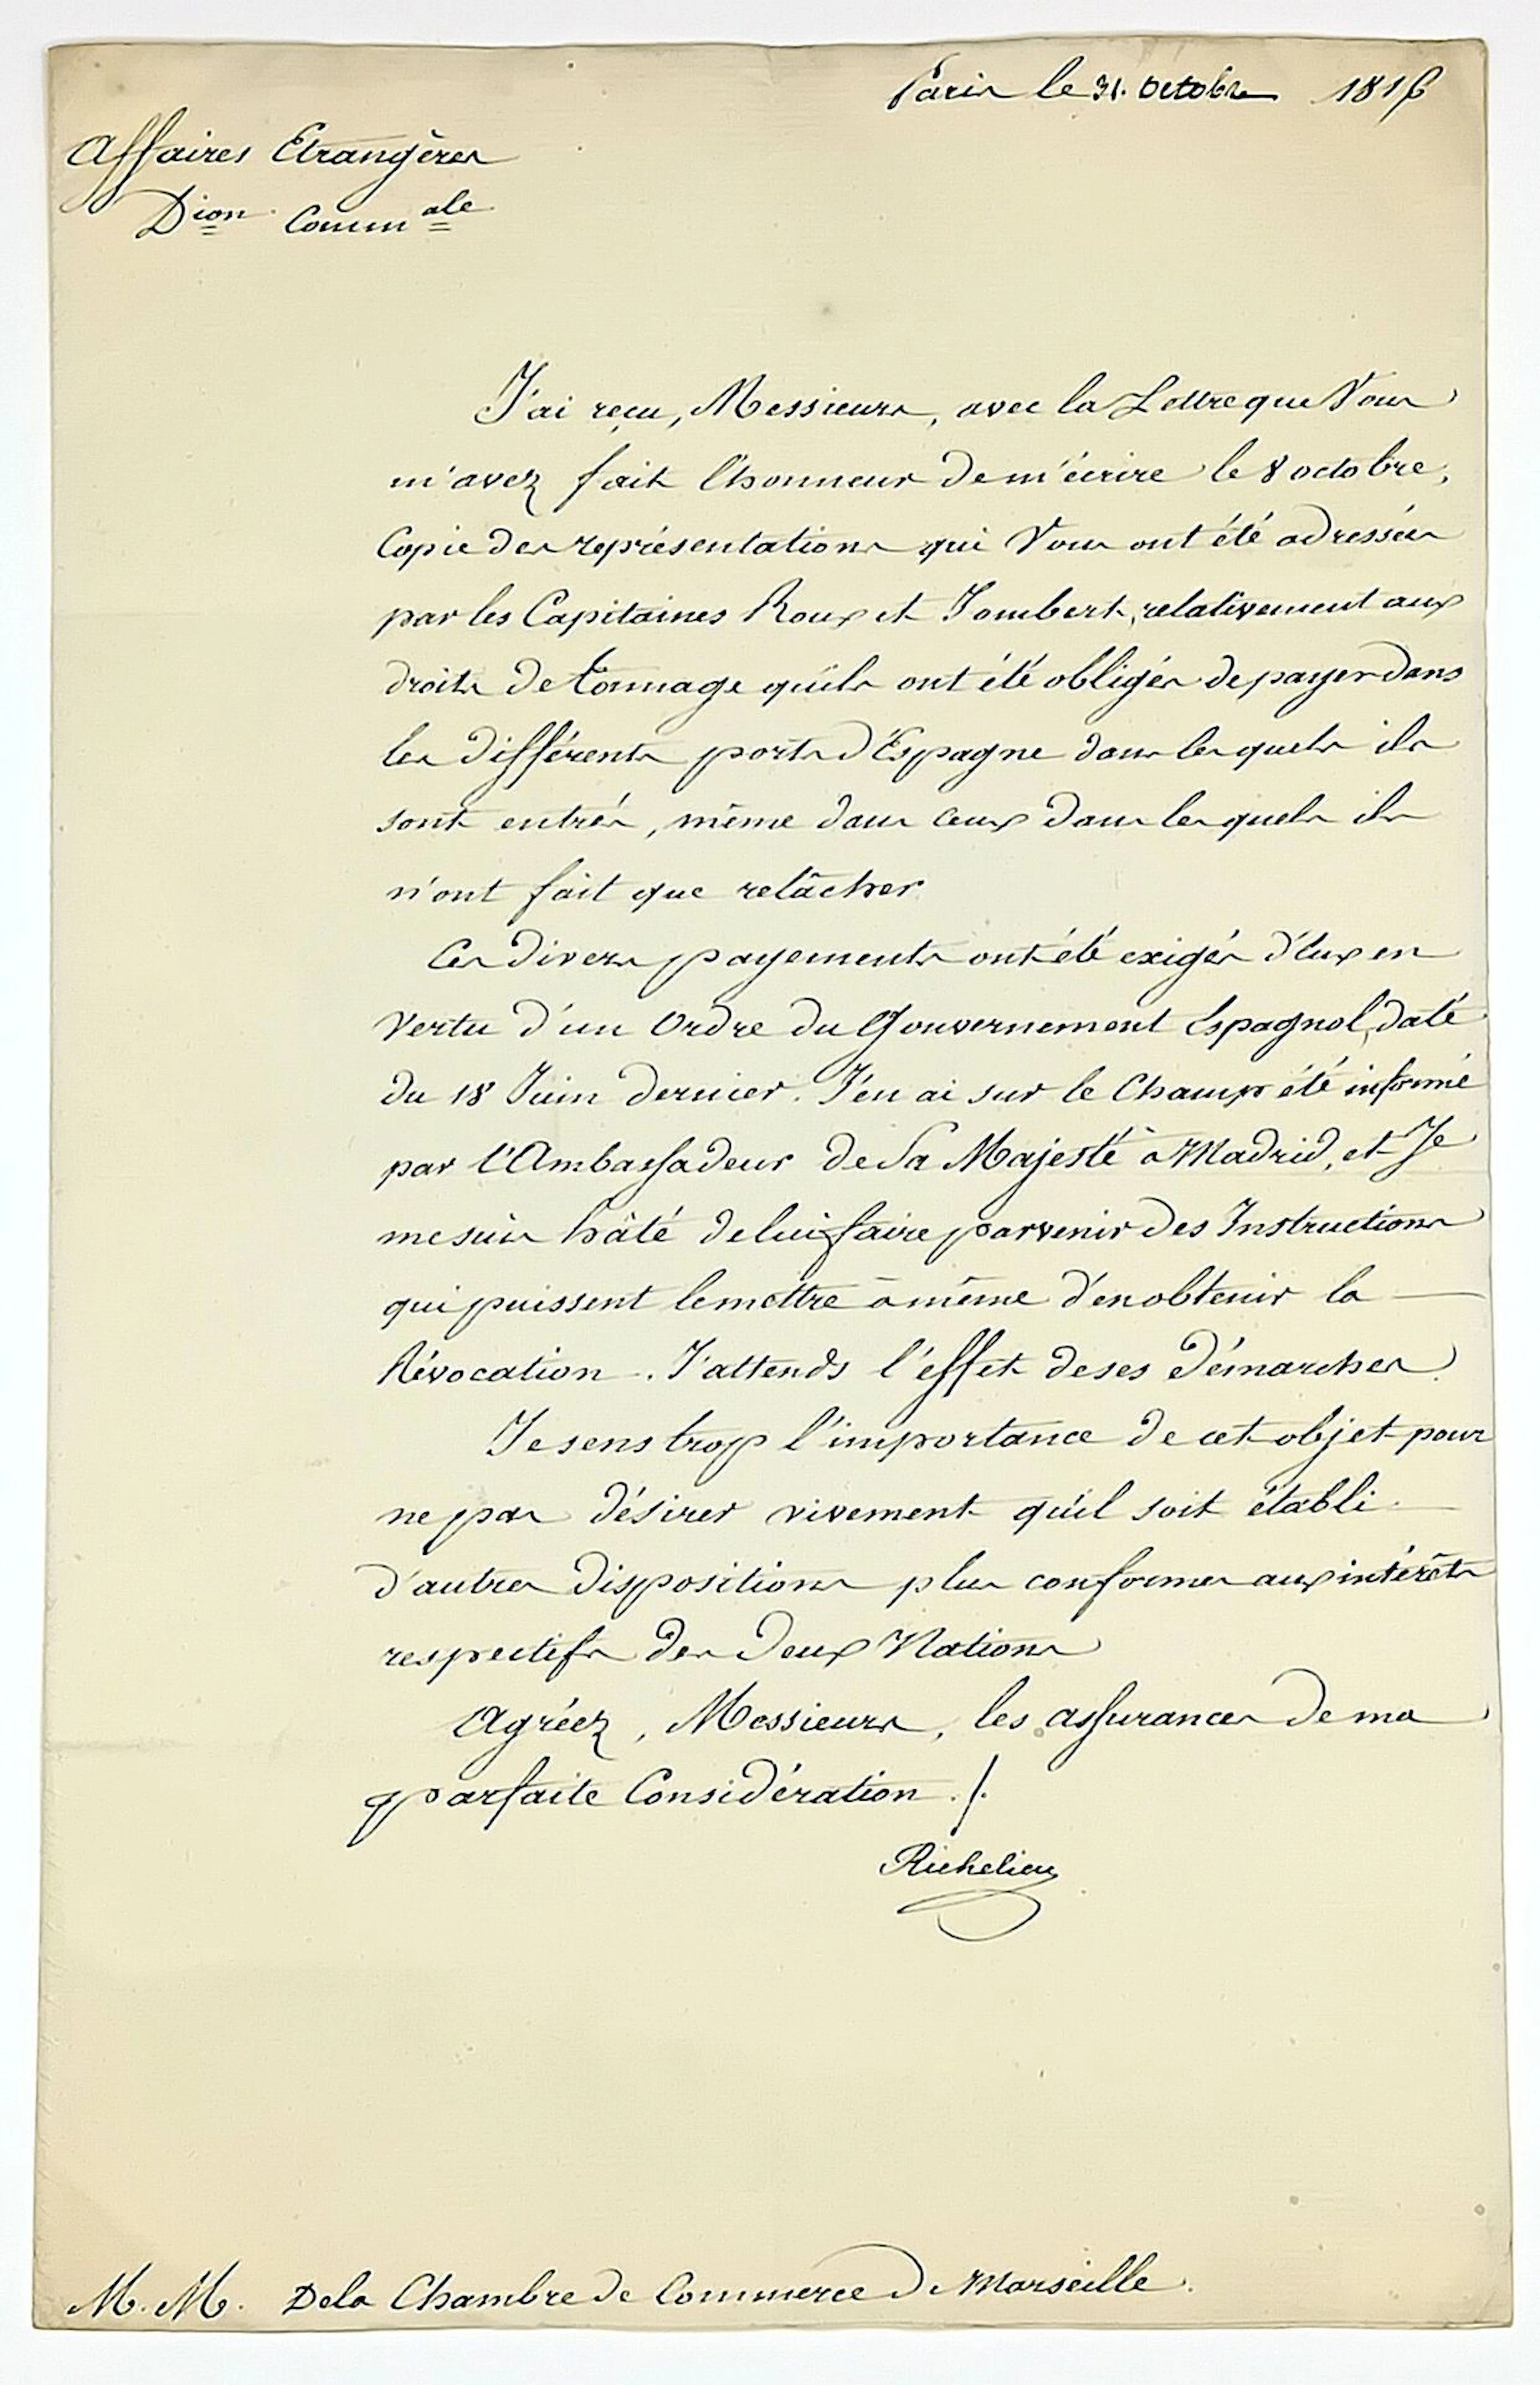 Paris le 31. Octobre 1816
Affaires Etrangères
Dion Commale
J'ai reçu, Messieurs, avec la Lettre que Vous
m'avez fait l'honneur de m'écrire le 8 octobre,
Copie des représentations qui Vous ont été adressées
par les Capitaines Roux et Jombert, relativement aux
droits de tonnage qu'ils ont été obligés de payer dans
les différents ports d'Espagne dans lesquels ils
sont entrés, même dans ceux dans lesquels ils
n'ont fait que relâcher.
Ces divers payements ont été exigés d'Eux en
vertu d'un Ordre du Gouvernement Espagnol, daté
du 18 Juin dernier. J'en ai sur le Champ été informé
par l'Ambassadeur de Sa Majesté à Madrid, et Je
me suis hâté de lui faire parvenir des Instructions
qui puissent le mettre à même d'en obtenir la
Révocation. J'attends l'effet de ses Démarches.
Je sens trop l'importance de cet objet pour
ne pas désirer vivement qu'il soit établi
d'autres dispositions plus conformes aux intérêts
respectifs des deux Nations
Agréez, Messieurs, les assurances de ma
parfaite Considération ./.
Richelieu
M. M. De la Chambre de Commerce de Marseille.